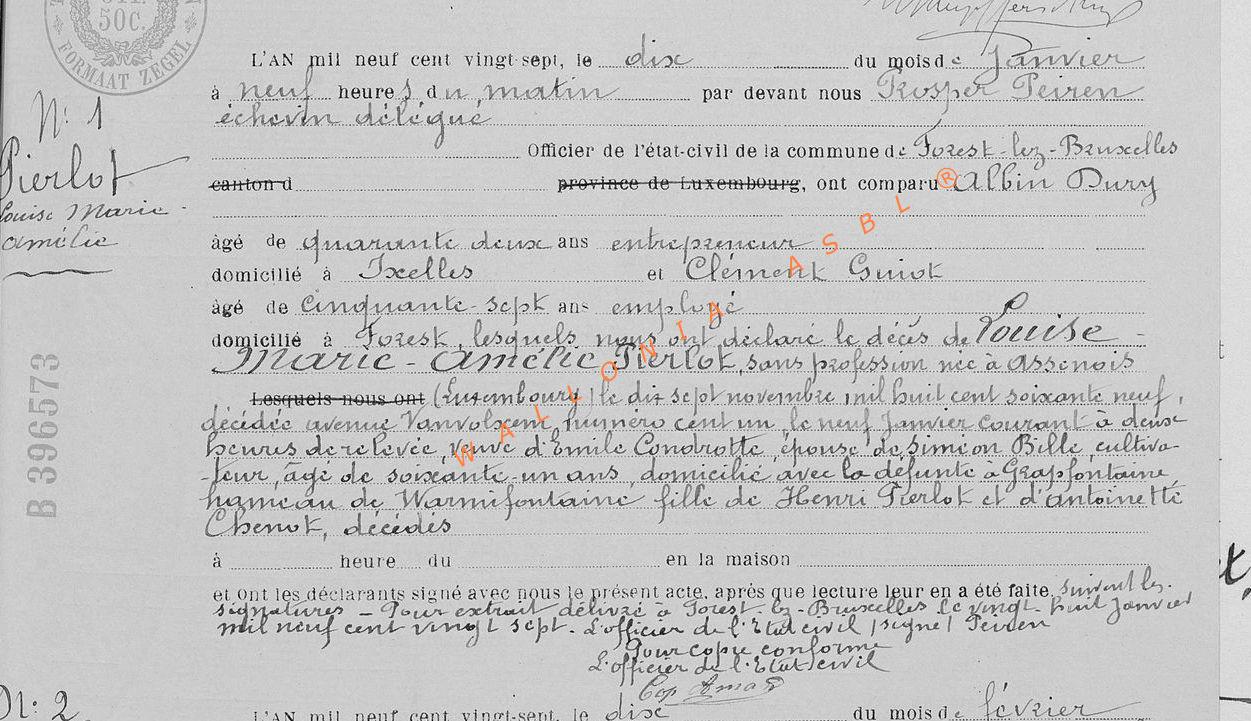 50C.
FORMAAT ZEGEL
L'AN mil neuf cent vingt-sept, le dix du mois de Janvier
à neuf heures du matin par devant nous Prosper Peiren
échevin délégué
Officier de l'état-civil de la commune de Forest-lez-Bruxelles
canton d province de Luxembourg, ont comparu Albin Dury
âgé de quarante deux ans entrepreneur
domicilié à Ixelles et Clément Guiot
âgé de cinquante-sept ans employé
domicilié à Forest, lesquels nous ont déclaré le décès de Louise
Marie-Amélie Pierlot, sans profession née à Assenois
Lesquels nous ont (Luxembourg) le dix sept novembre mil huit cent soixante neuf,
décédée avenue Vanvolxem, numéro cent un, le neuf Janvier courant à deux
heures de relevée, veuve d'Emile Condrotte, épouse de Siméon Bille, cultiva-
-teur, âgé de soixante-un ans, domicilié avec la défunte à Grapfontaine,
hameau de Warmifontaine fille de Henri Pierlot et d'Antoinette
Chenot, décédés
à heure du en la maison
et ont les déclarants signé avec nous le présent acte, après que lecture leur en a été faite, suivent les
signatures - Pour extrait délivré à Forest-lez-Bruxelles le vingt-huit Janvier
mil neuf cent vingt sept. L'officier de l'Etat civil (signé) Peiren
Pour copie conforme
L'officier de l'Etat civil
N° 1
Pierlot
Louise Marie-
Amélie
B 396573
WALLONIA ASBL®
N° 2
L'AN mil neuf cent vingt-sept, le dix du mois de février